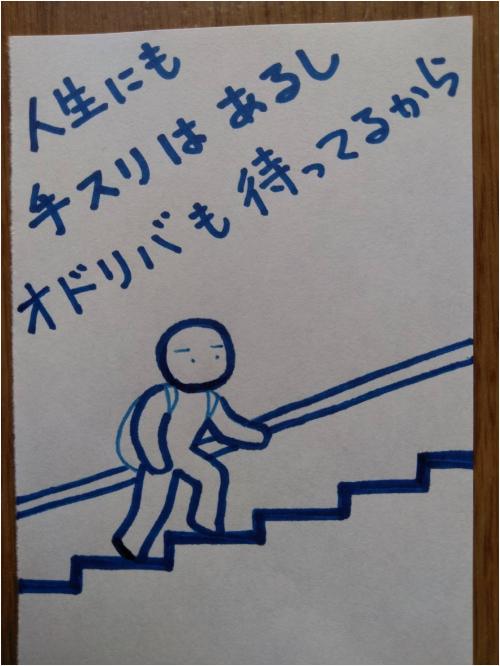 人生にも
手スリは あるし
オドリバも 待ってるから